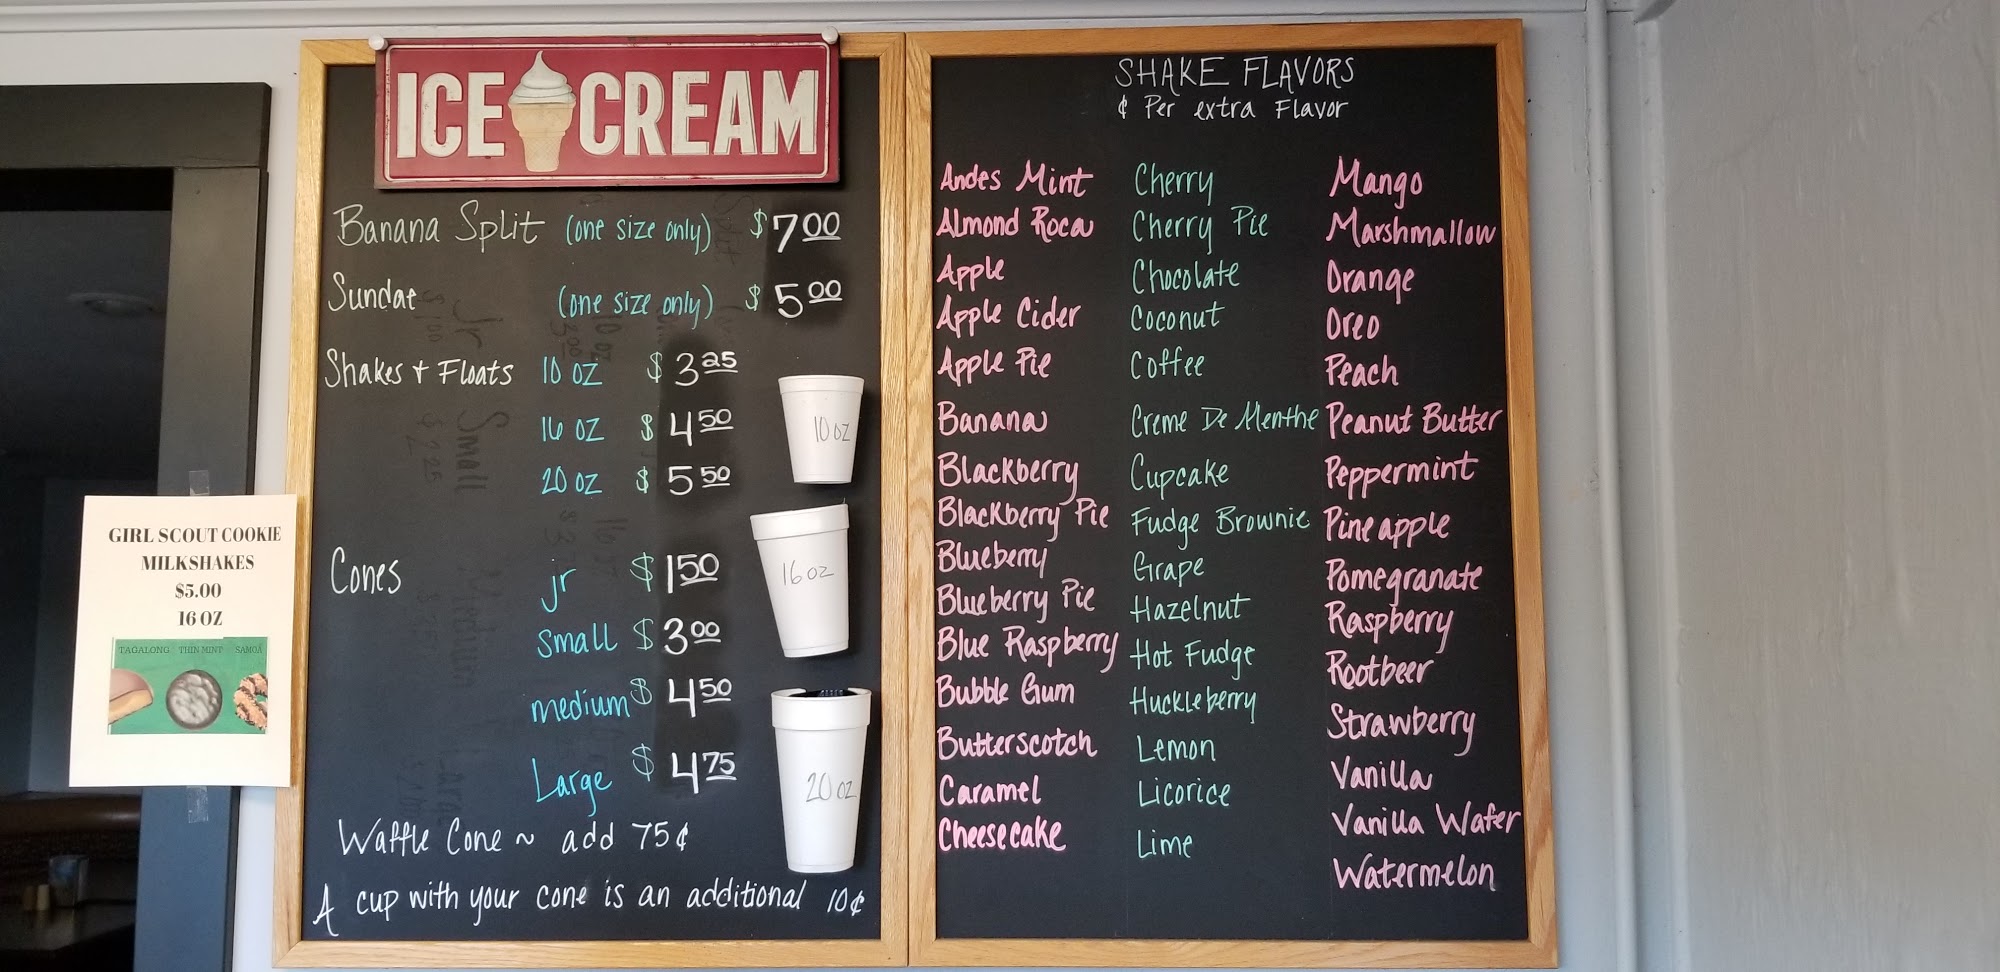 ICE CREAM
Banana Split (one size only) $7.00
Sundae (one size only) $5.00
Shakes + Floats 10 oz $3.25
16 oz $4.50
20 oz $5.50
Cones jr $1.50
small $3.00
medium $4.50
Large $4.75
Waffle Cone ~ add 75¢
A cup with your cone is an additional 10¢
10 oz
16 oz
20 oz
GIRL SCOUT COOKIE
MILKSHAKES
$5.00
16 OZ
TAGALONG THIN MINT SAMOA
SHAKE FLAVORS
¢ Per extra Flavor
Andes Mint
Almond Roca
Apple
Apple Cider
Apple Pie
Banana
Blackberry
Blackberry Pie
Blueberry
Blueberry Pie
Blue Raspberry
Bubble Gum
Butterscotch
Caramel
Cheesecake
Cherry
Cherry Pie
Chocolate
Coconut
Coffee
Creme De Menthe
Cupcake
Fudge Brownie
Grape
Hazelnut
Hot Fudge
Huckleberry
Lemon
Licorice
Lime
Mango
Marshmallow
Orange
Oreo
Peach
Peanut Butter
Peppermint
Pineapple
Pomegranate
Raspberry
Rootbeer
Strawberry
Vanilla
Vanilla Wafer
Watermelon